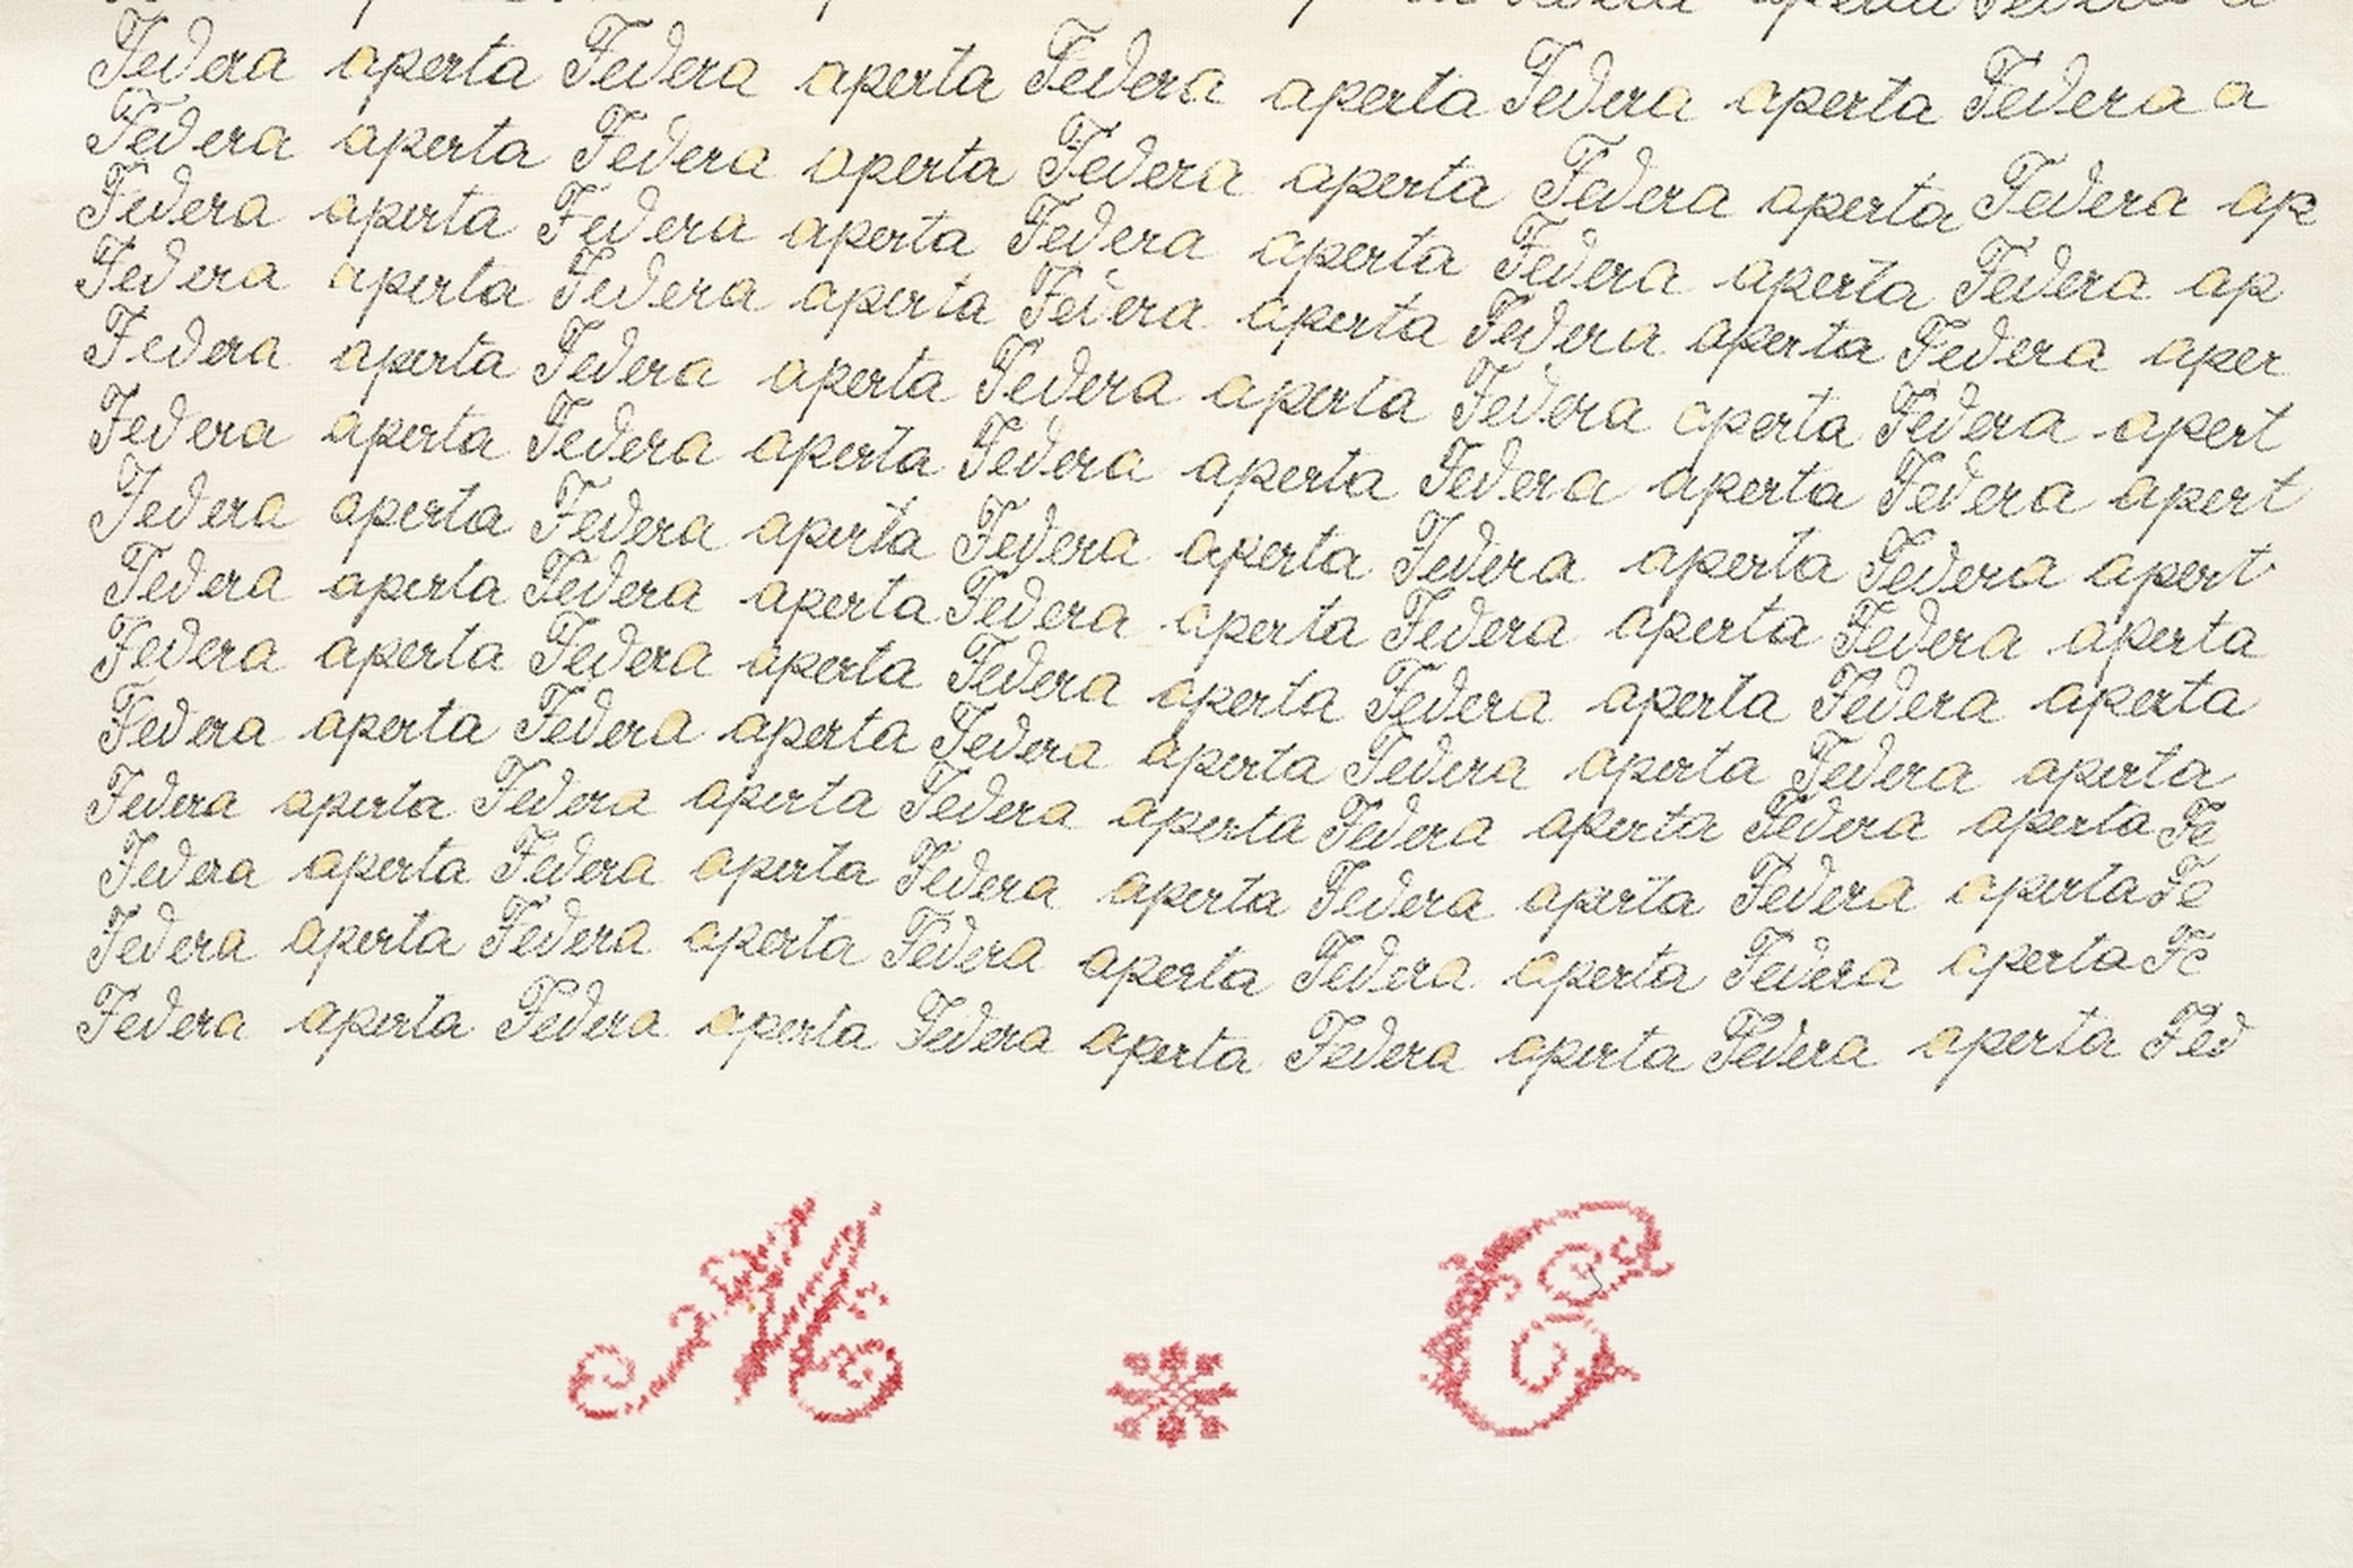 Federa aperta Federa aperta Federa aperta Federa aperta Federa a
Federa aperta Federa aperta Federa aperta Federa aperta Federa ap
Federa aperta Federa aperta Federa aperta Federa aperta Federa ap
Federa aperta Federa aperta Federa aperta Federa aperta Federa aper
Federa aperta Federa aperta Federa aperta Federa aperta Federa apert
Federa aperta Federa aperta Federa aperta Federa aperta Federa apert
Federa aperta Federa aperta Federa aperta Federa aperta Federa apert
Federa aperta Federa aperta Federa aperta Federa aperta Federa aperta
Federa aperta Federa aperta Federa aperta Federa aperta Federa aperta
Federa aperta Federa aperta Federa aperta Federa aperta Federa aperta
Federa aperta Federa aperta Federa aperta Federa aperta Federa aperta Fe
Federa aperta Federa aperta Federa aperta Federa aperta Federa aperta Fe
Federa aperta Federa aperta Federa aperta Federa aperta Federa aperta Fe
Federa aperta Federa aperta Federa aperta Federa aperta Federa aperta Fed
M C